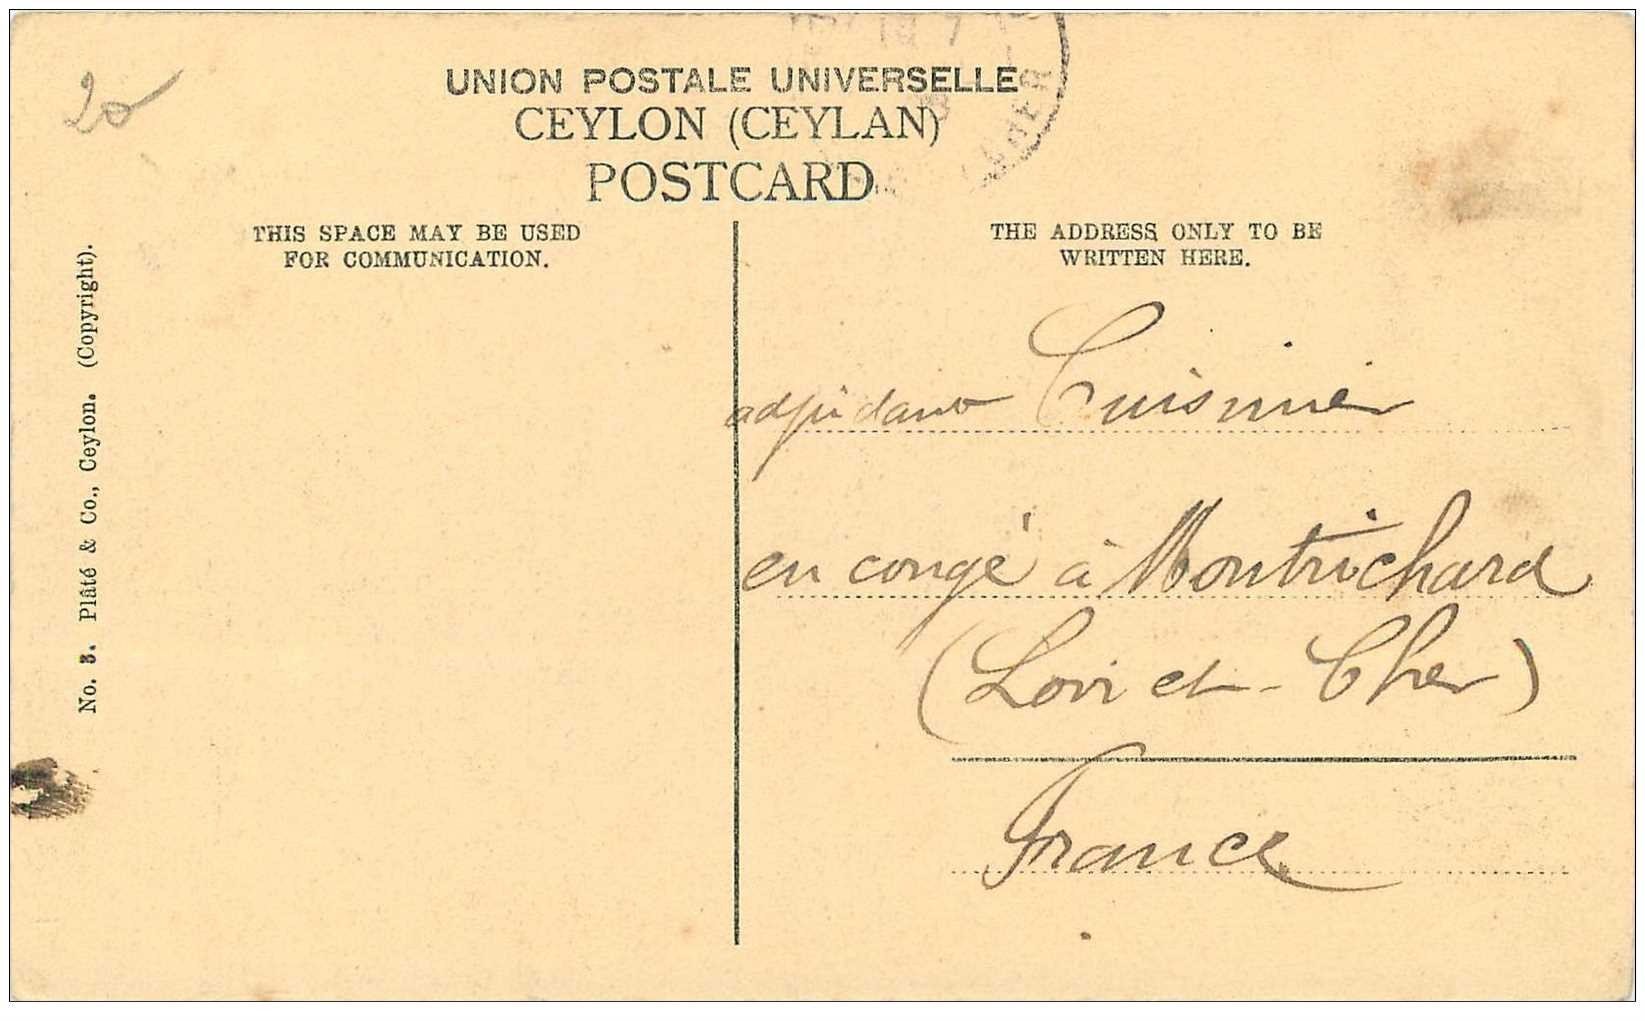 20
UNION POSTALE UNIVERSELLE
CEYLON (CEYLAN)
POSTCARD
THIS SPACE MAY BE USED
FOR COMMUNICATION.
THE ADDRESS ONLY TO BE
WRITTEN HERE.
No. 3. Plâté & Co., Ceylon. (Copyright).
adjudant Cuisinier
en congé à Montrichard
(Loir et-Cher)
France